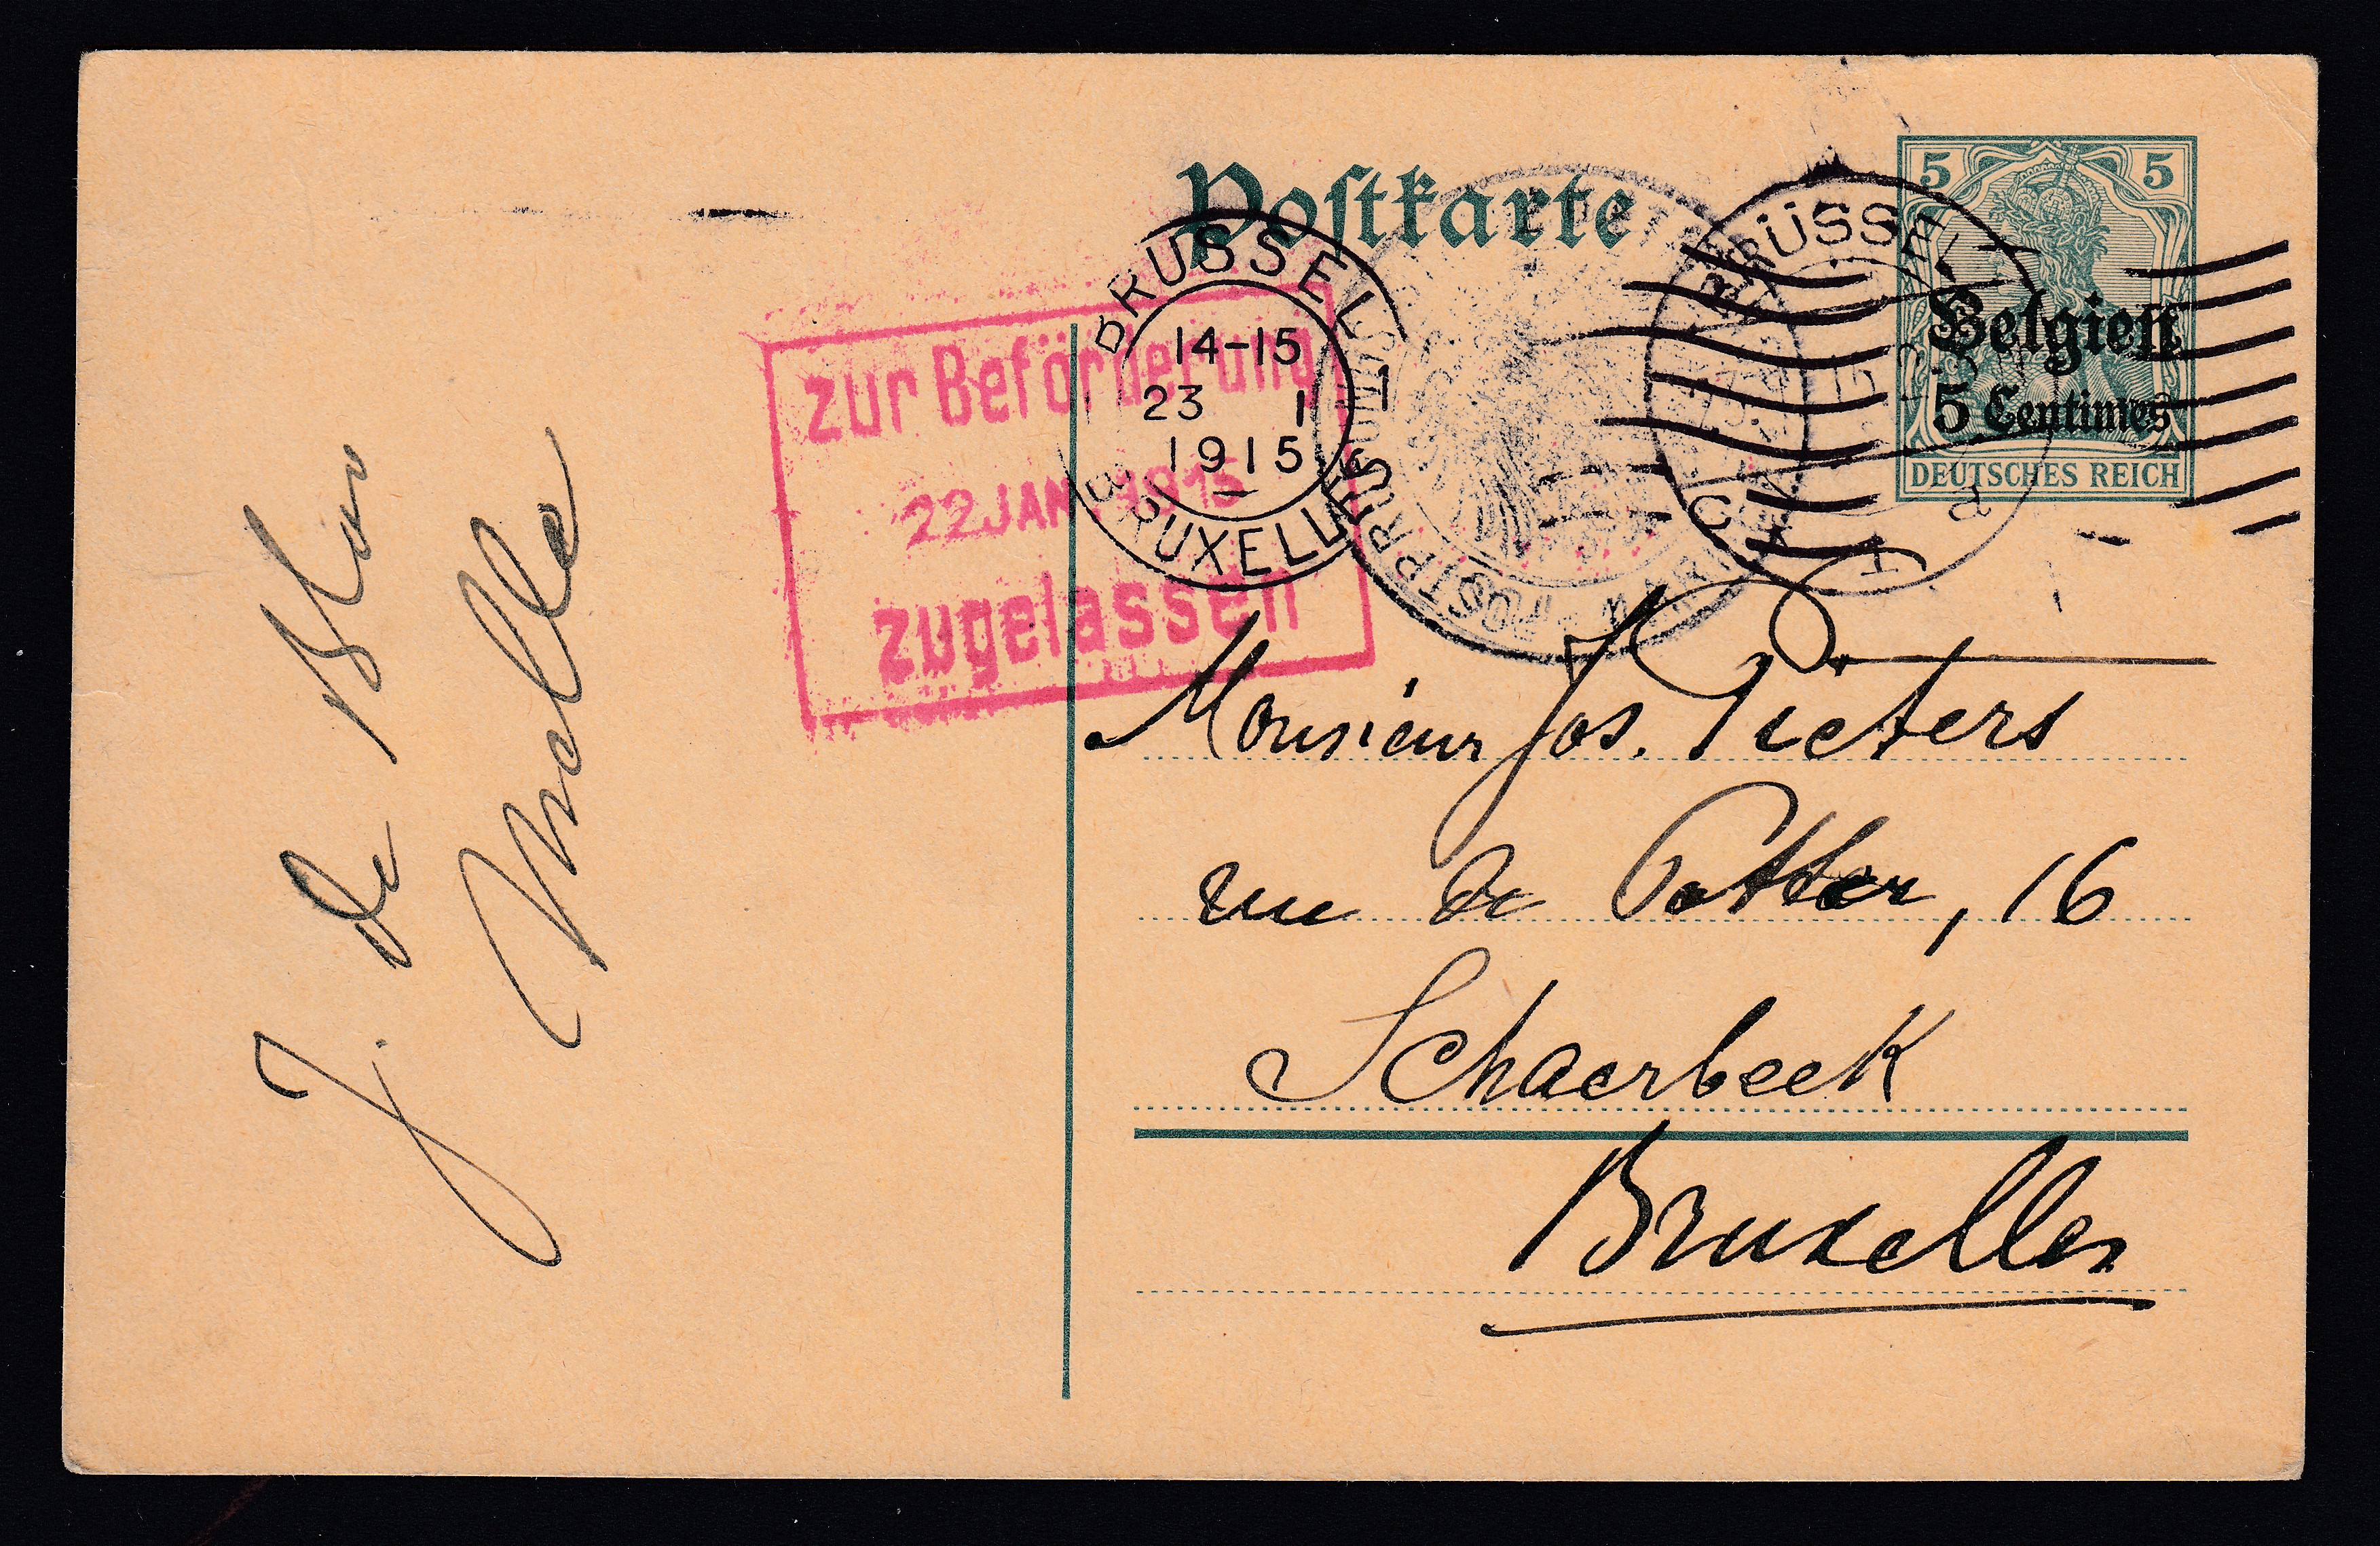 Postkarte
5 5
Belgien
5 Centimes
DEUTSCHES REICH
BRÜSSEL
C 1
BRÜSSEL 1
14-15
23 1
1915
BRUXELLES
zur Beförderung
22 JAN. 1915
zugelassen
J. De
Malle
Monsieur Jos. Pieters
rue de Potter, 16
Schaerbeek
Bruxelles